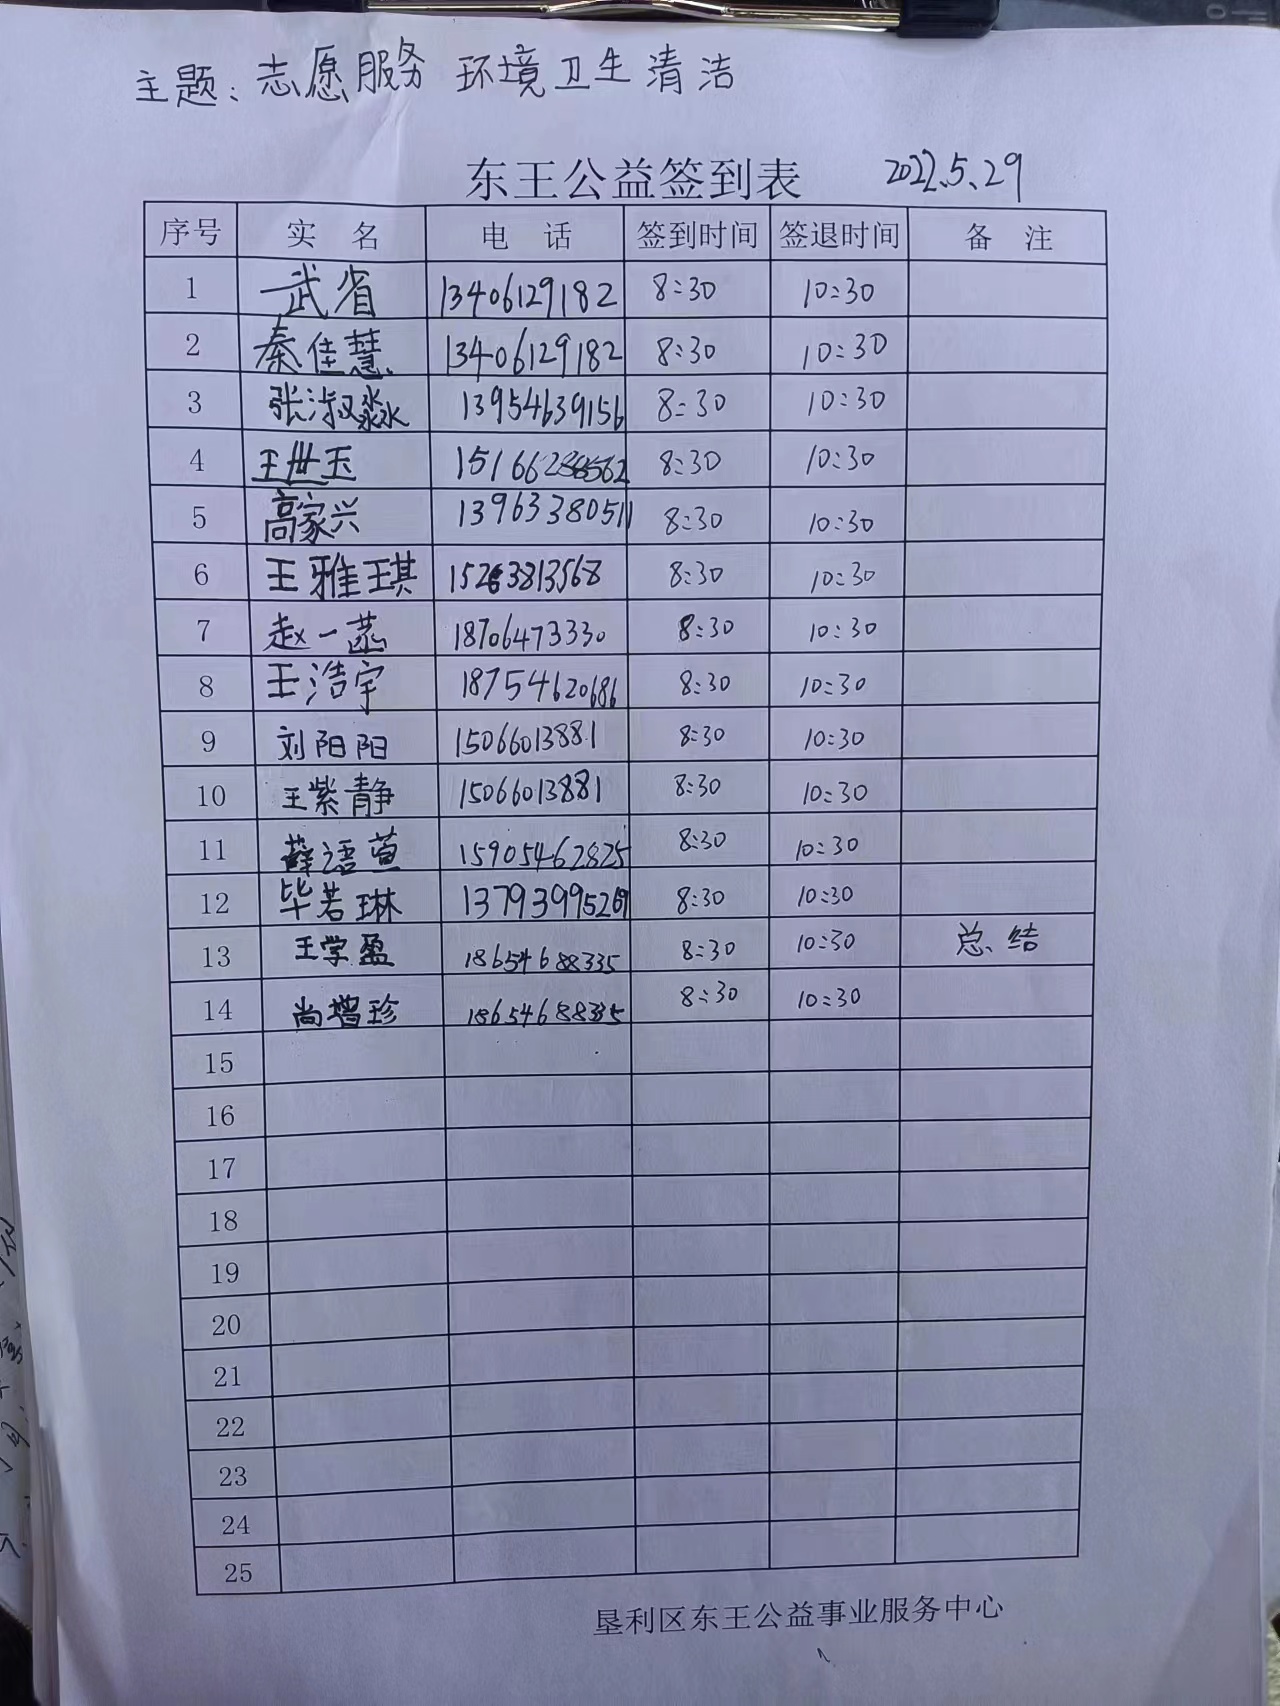 主题：志愿服务 环境卫生清洁
东王公益签到表 2022.5.29
序号 实 名 电 话 签到时间 签退时间 备 注
1 武省 13406129182 8:30 10:30
2 秦佳慧 13406129182 8:30 10:30
3 张淑淼 13954639156 8:30 10:30
4 王世玉 15166288562 8:30 10:30
5 高家兴 13963380511 8:30 10:30
6 王雅琪 15263813568 8:30 10:30
7 赵一菡 18706473330 8:30 10:30
8 王浩宇 18754620686 8:30 10:30
9 刘阳阳 15066013881 8:30 10:30
10 王紫静 15066013881 8:30 10:30
11 薛语萱 15905462825 8:30 10:30
12 毕若琳 13793995269 8:30 10:30
13 王学盈 18654688335 8:30 10:30 总结
14 尚增珍 18654688335 8:30 10:30
15
16
17
18
19
20
21
22
23
24
25
垦利区东王公益事业服务中心